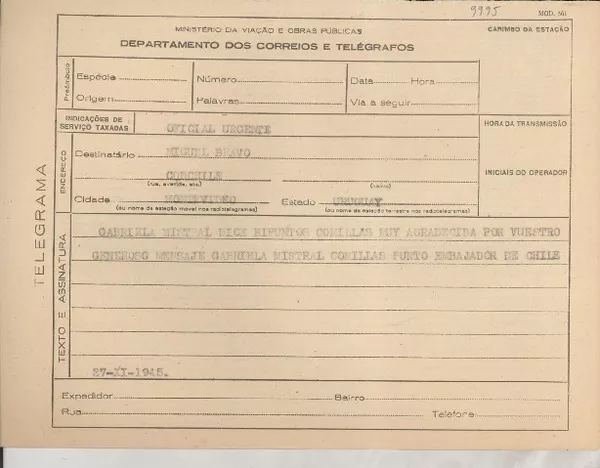 9995
MOD. 561
MINISTÉRIO DA VIAÇÃO E OBRAS PÚBLICAS
DEPARTAMENTO DOS CORREIOS E TELÉGRAFOS
CARIMBO DA ESTAÇÃO
TELEGRAMA
Preâmbulo
Espécie
Número
Data
Hora
Origem
Palavras
Via a seguir
INDICAÇÕES DE
SERVIÇO TAXADAS
OFICIAL URGENTE
HORA DA TRANSMISSÃO
ENDERÊÇO
Destinatário
MIGUEL BRAVO
CONCHILE
(rua, avenida, etc)
INICIAIS DO OPERADOR
Cidade
MONTEVIDEO
Estado
URUGUAY
(ou nome da estação movel nos radiotelegramas)
(ou nome da estação terrestre nos radiotelegramas)
TEXTO E ASSINATURA
GABRIELA MISTRAL DICE BIPUNTOS COMILLAS MUY AGRADECIDA POR VUESTRO
GENEROSO MENSAJE GABRIELA MISTRAL COMILLAS PUNTO EMBAJADOR DE CHILE
27-XI-1945.
Expedidor
Bairro
Rua
Telefone